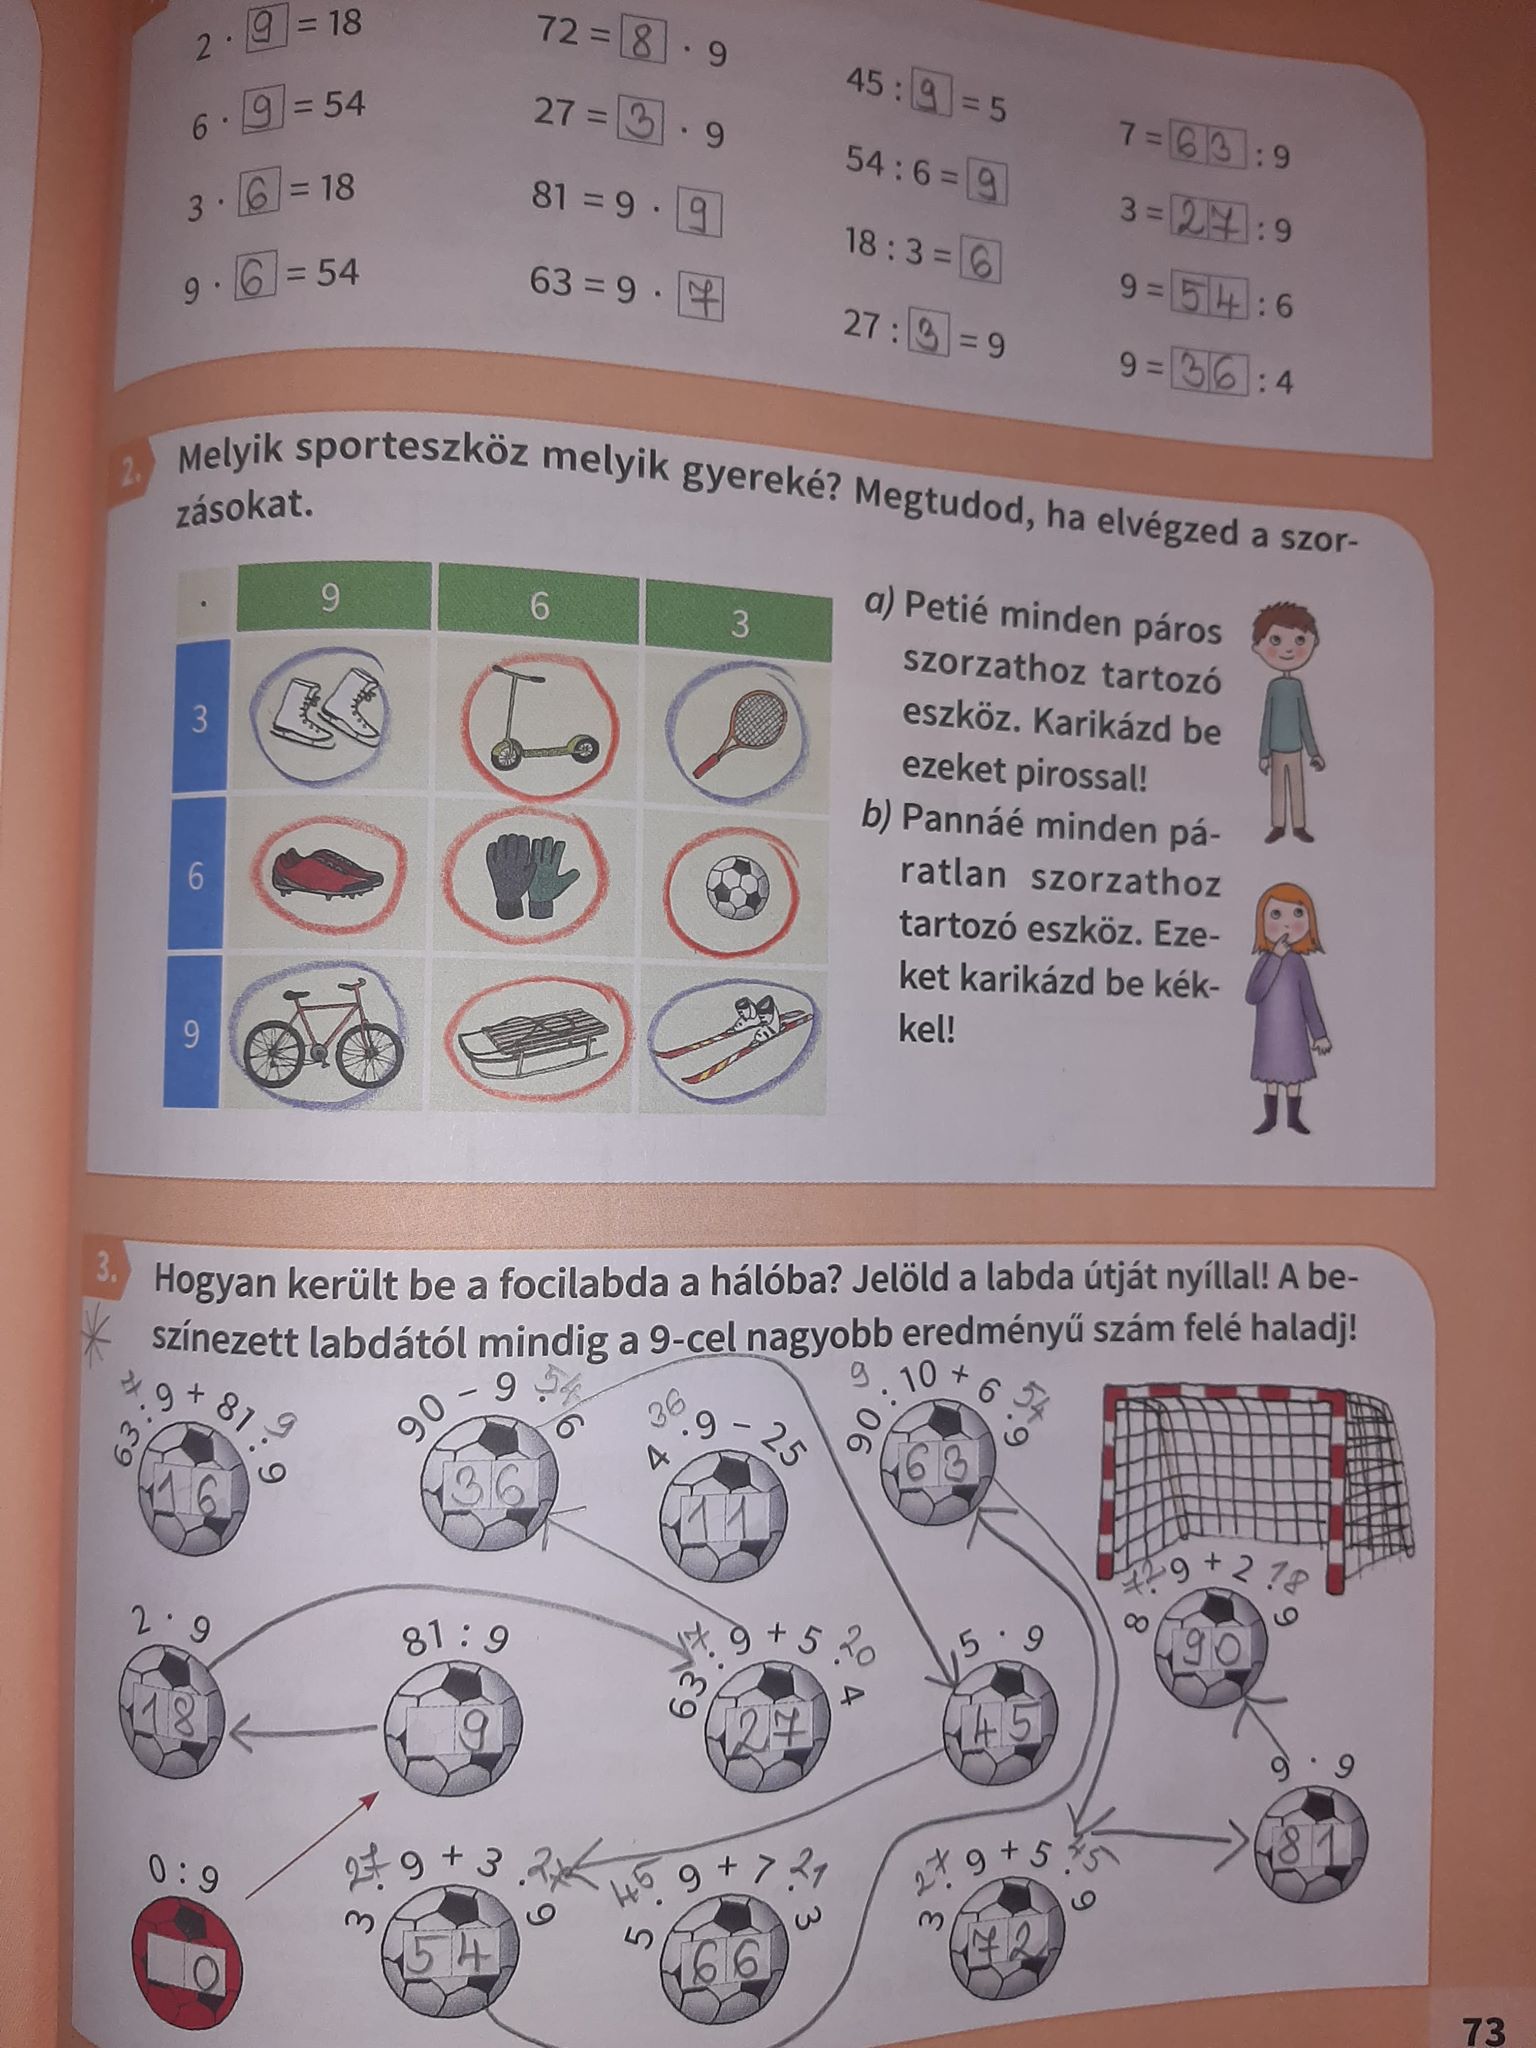 2 · 9 = 18
6 · 9 = 54
3 · 6 = 18
9 · 6 = 54
72 = 8 · 9
27 = 3 · 9
81 = 9 · 9
63 = 9 · 7
45 : 9 = 5
54 : 6 = 9
18 : 3 = 6
27 : 3 = 9
7 = 63 : 9
3 = 27 : 9
9 = 54 : 6
9 = 36 : 4
2. Melyik sporteszköz melyik gyereké? Megtudod, ha elvégzed a szor-
zásokat.
· 9 6 3
3
6
9
a) Petié minden páros
szorzathoz tartozó
eszköz. Karikázd be
ezeket pirossal!
b) Pannáé minden pá-
ratlan szorzathoz
tartozó eszköz. Eze-
ket karikázd be kék-
kel!
3. Hogyan került be a focilabda a hálóba? Jelöld a labda útját nyíllal! A be-
színezett labdától mindig a 9-cel nagyobb eredményű szám felé haladj!
7 9
63 : 9 + 81 : 9
16
54
90 – 9 · 6
36
36
4 · 9 – 25
11
9 54
90 : 10 + 6 · 9
63
2 · 9
18
81 : 9
9
7 20
63 : 9 + 5 · 4
27
5 · 9
45
72 18
8 · 9 + 2 · 9
90
0 : 9
0
27 27
3 · 9 + 3 · 9
54
45 21
5 · 9 + 7 · 3
66
27 45
3 · 9 + 5 · 9
72
9 · 9
81
73